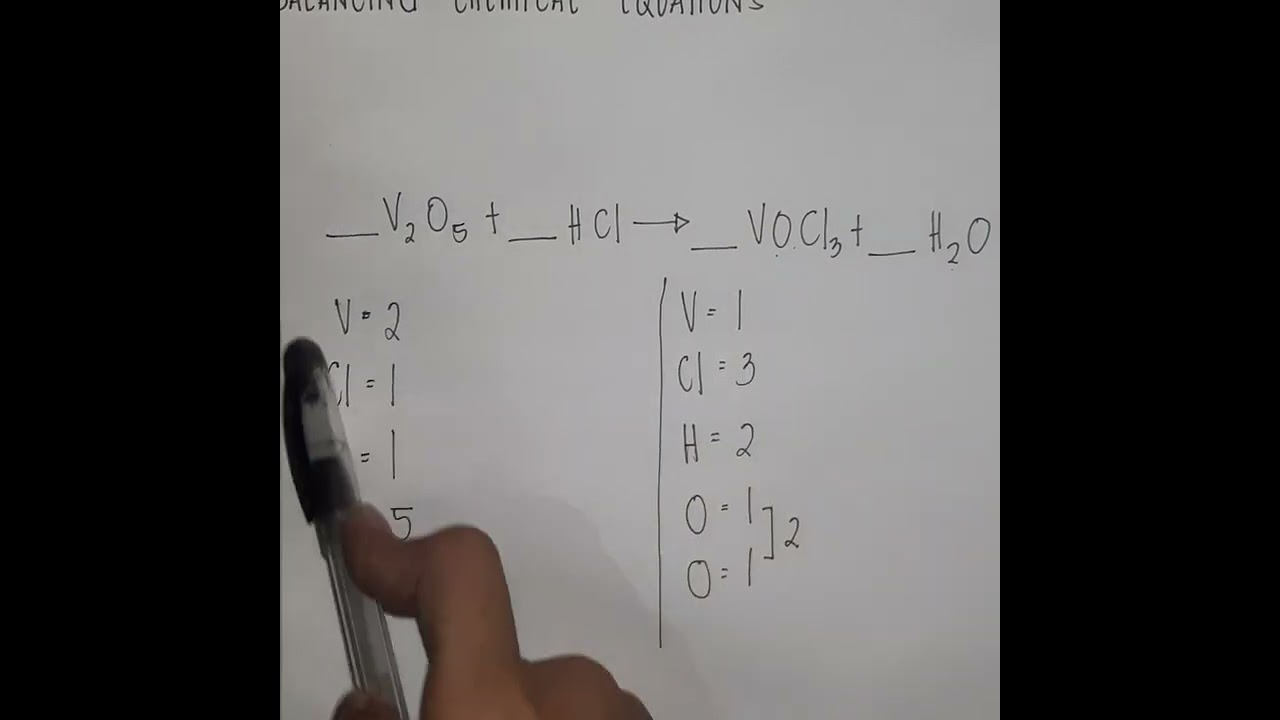 BALANCING CHEMICAL EQUATIONS
__V₂O₅ + __HCl → __VOCl₃ + __H₂O
V = 2
Cl = 1
= 1
5
V = 1
Cl = 3
H = 2
O = 1
O = 1 ] 2